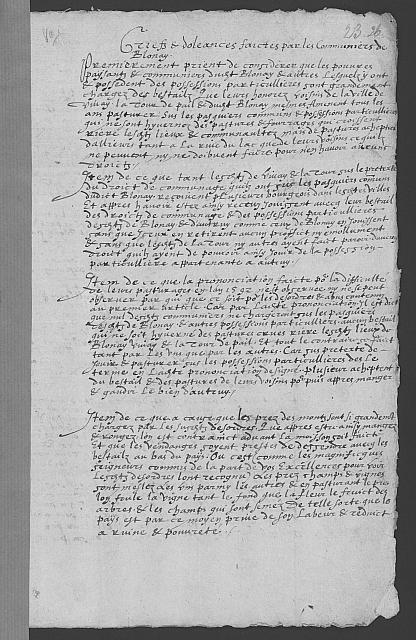 23. 26.
Griefz & doleances faictes par les Communiers de
Blonay
Premierement prient de considerer que les pouures
paysantz & communiers dudit Blonay & autres Lesquelz y ont
& possedent des possessions particulieres sont grandement
chargez des bestailz que leurs honorez voisins de la Ville de
Viuay la Tour de peil & dudit Blonay mesmes Amenent tous les
ans pasturer Sur les pasquiers communs & possessions particulieres
qui ne sont hyuernez des pastures & fourrages qui croissent
riere lesditz lieux & communaultez mais de pastures acheptees
dailleurs tant a la riue du lac que de leurs voisins ce qu'ilz
ne peuuent ny ne doibuent faire pour nen hauoir aucuns
droictz
Item de ce que tant lesditz de Viuay & la Tour sus le pretexte
du droict de communage quilz ont sus les pasquiers communs
dudit Blonay reçoiuent plusieurs bourgeois dans lesdites villes
Et apres hauoir estre ainsy receuz Jouissent auecq leur bestail
des droictz de communage & des possessions particulieres
desditz de Blonay & dautruy comme ceux de Blonay en Jouissent
sans que Iceux en retirent aucung proffict ny enrollement
& sans que lesditz de la Tour ny autres ayent faict paroir daucung
droict quilz ayent de pouuoir ainsy Jouir de la possession
particuliere appartenante a autruy
Item de ce que la prononciation faicte pour la difficulté
de leurs pasturages en lan 1592 n'est obseruée ny ne se peut
obseruer par qui que ce soit pour les desordres & abus contenuz
au premier article Car par Ladite prononciation Il est dict
que nul desditz communiers ne chargeront sus les pasquiers
desditz de Blonay & autres possessions particulieres aucung bestail
qui ne soit hyuerné des pastures crues riere lesditz lieux de
Blonay Viuay & la Tour de peil Et tout le contraire se faict
tant par les vns que par les autres Car sus pretexte de
viure & pasturer sus les possessions particulieres des le
terme en Ladite prononciation designé plusieurs acheptent
du bestail & des pastures de leurs voisins pour puis apres manger
& gaudir le bien d'autruy
Item de ce que a cause que les prez des montz sont si grandement
chargez par les susditz desordres Que apres estre ainsy mangez
& rongez lon est contrainct aduant la moisson soit faicte
Et que les vendanges soyent prestes de descendre auecq les
bestailz au bas du pays Ou c'est comme les magnificques
seigneurs commis de la part de vos Excellences pour voir
lesditz desordres l'ont recognu Les prez champs & vignes
sont meslez Les vns parmy les autres & en pasturant le pre
lon foule la vigne tant le fond que la fleur le fruict des
arbres & les champs qui sont semez De telle sorte que le
pays est par ce moyen priué de son Labeur & reduict
a ruine & pouureté